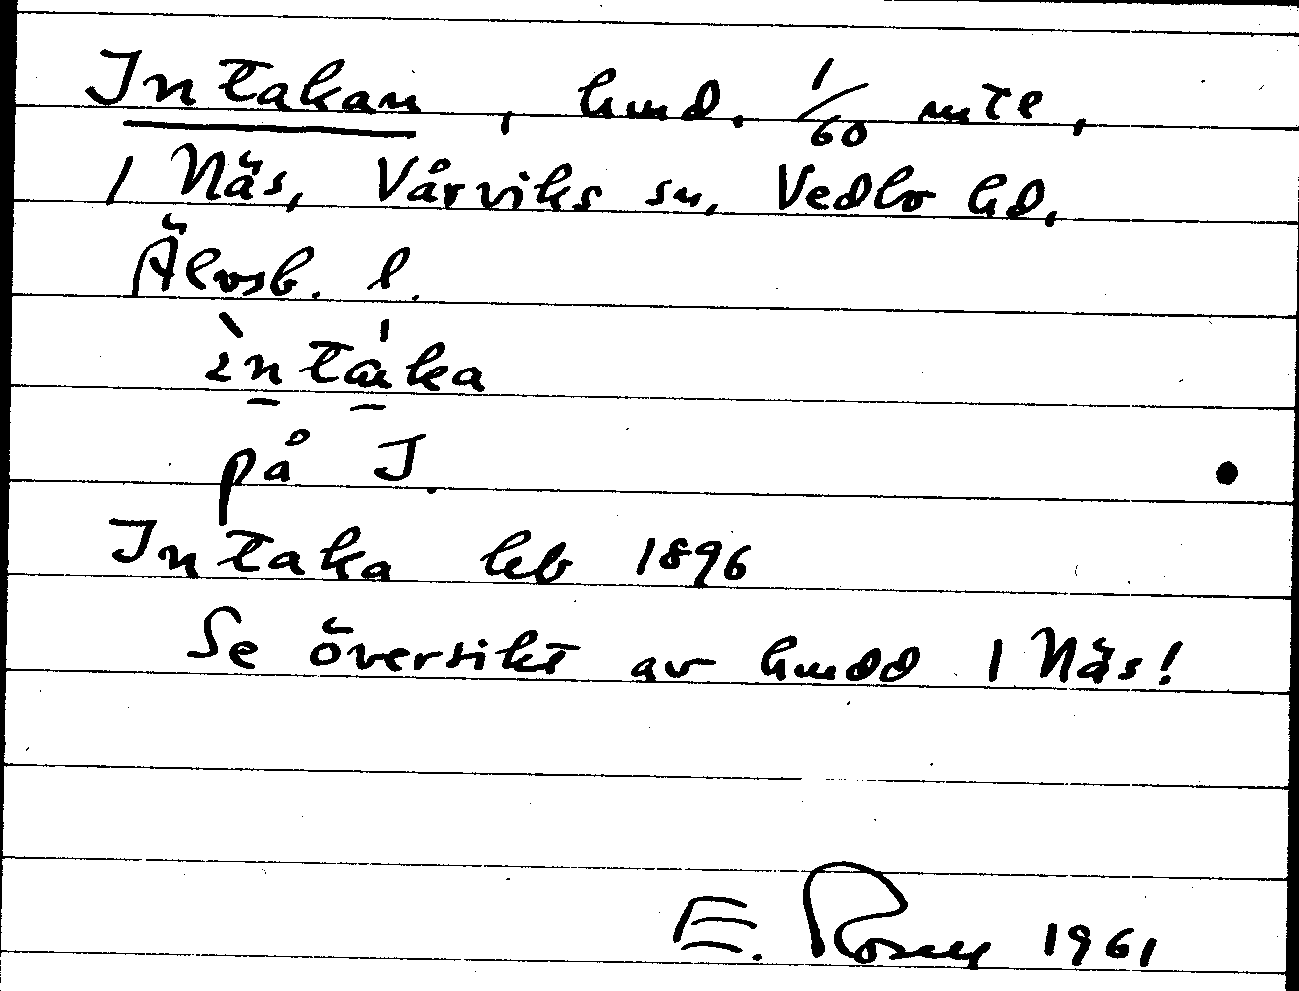 Intakan, hmd. 1/60 mtl,
1 Näs, Vårviks sn, Vedbo hd,
Älvsb. l.
ìntáka
på I.
Intaka hb 1896
Se översikt av hmdd 1 Näs!
E. 1961